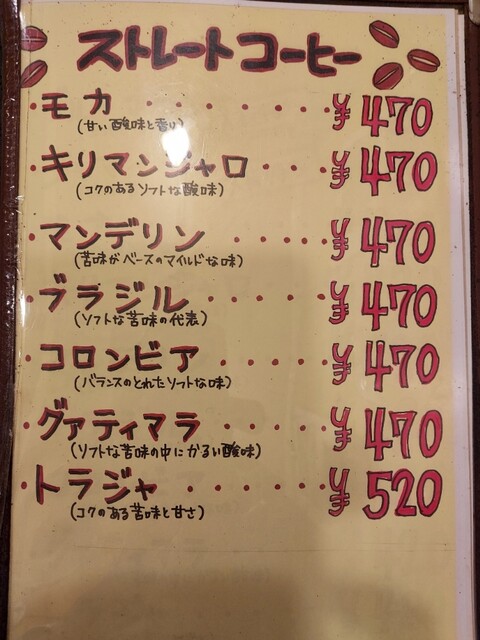 ストレートコーヒー
モカ ¥470
(甘い酸味と香り)
キリマンジャロ ¥470
(コクのあるソフトな酸味)
マンデリン ¥470
(苦味がベースのマイルドな味)
ブラジル ¥470
(ソフトな苦味の代表)
コロンビア ¥470
(バランスのとれたソフトな味)
グァティマラ ¥470
(ソフトな苦味の中にかるい酸味)
トラジャ ¥520
(コクのある苦味と甘さ)